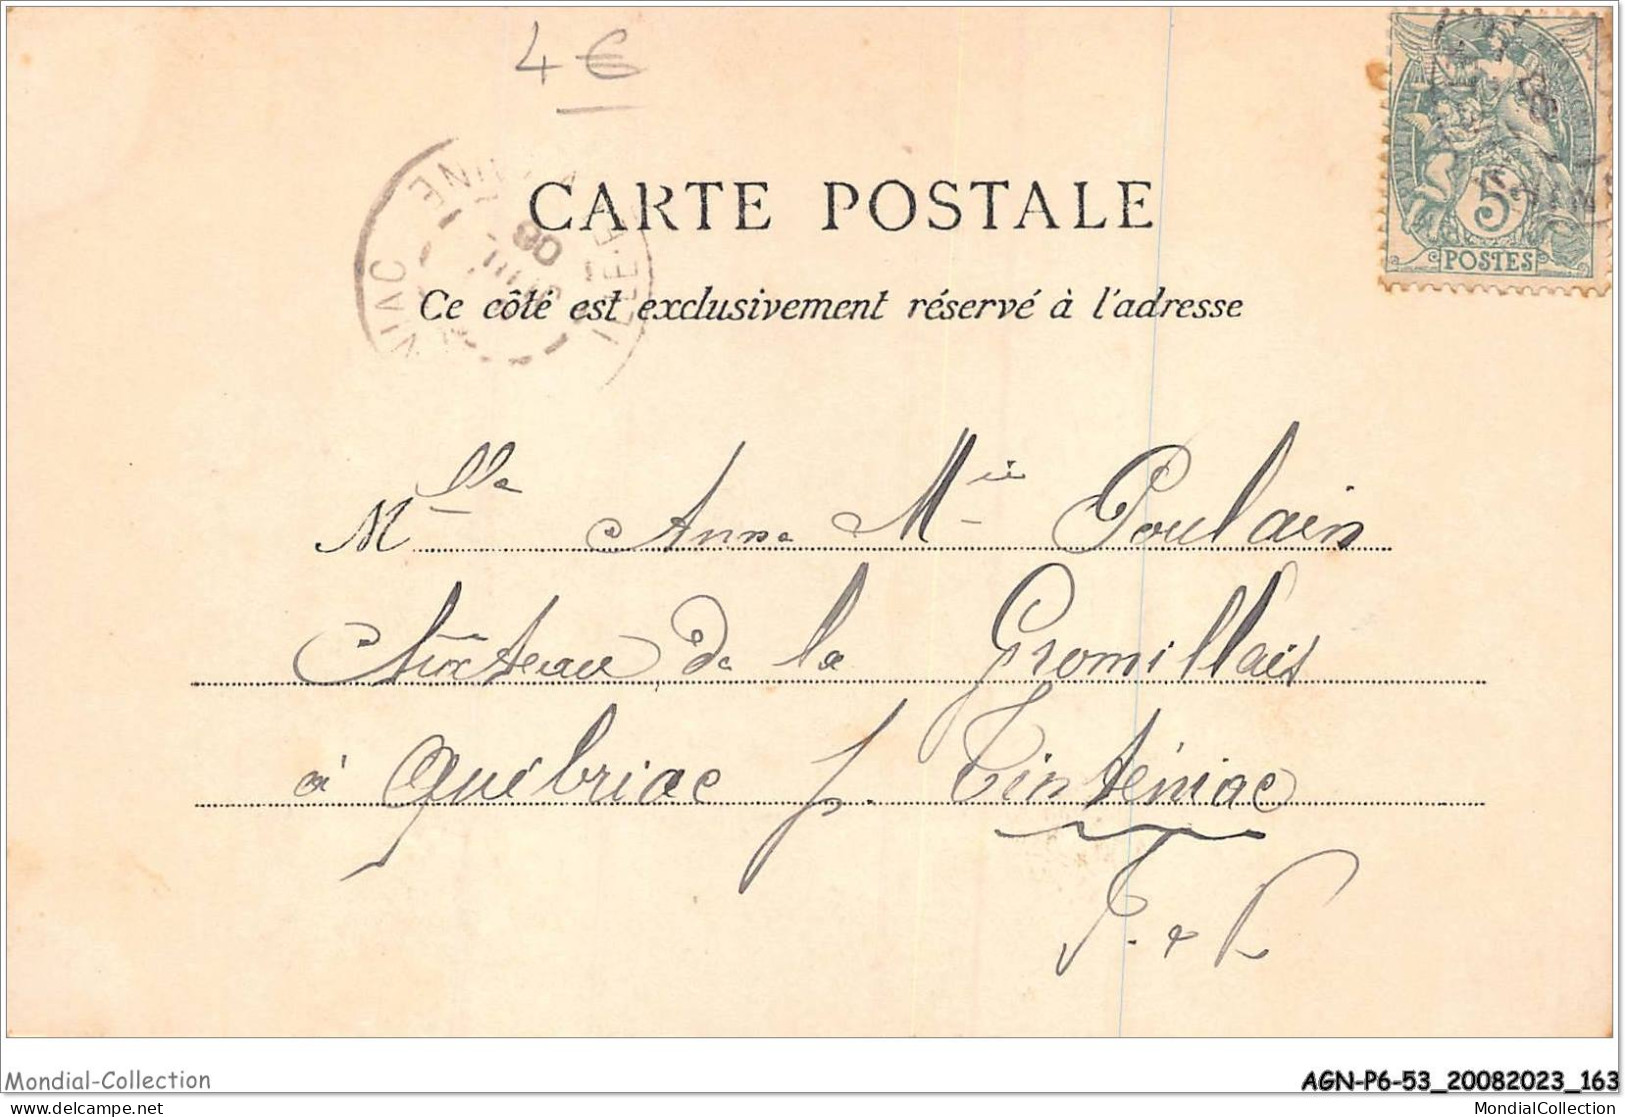 4 €
CARTE POSTALE
Ce côté est exclusivement réservé à l'adresse
5
POSTES
NIAC
ILLE-E
VILAINE
06
Mlle Anne Mie Poulain
Château de la Gromillais
à Québriac p. Tinténiac
I. & V.
Mondial-Collection
AGN-P6-53_20082023_163
delcampe.net
MondialCollection